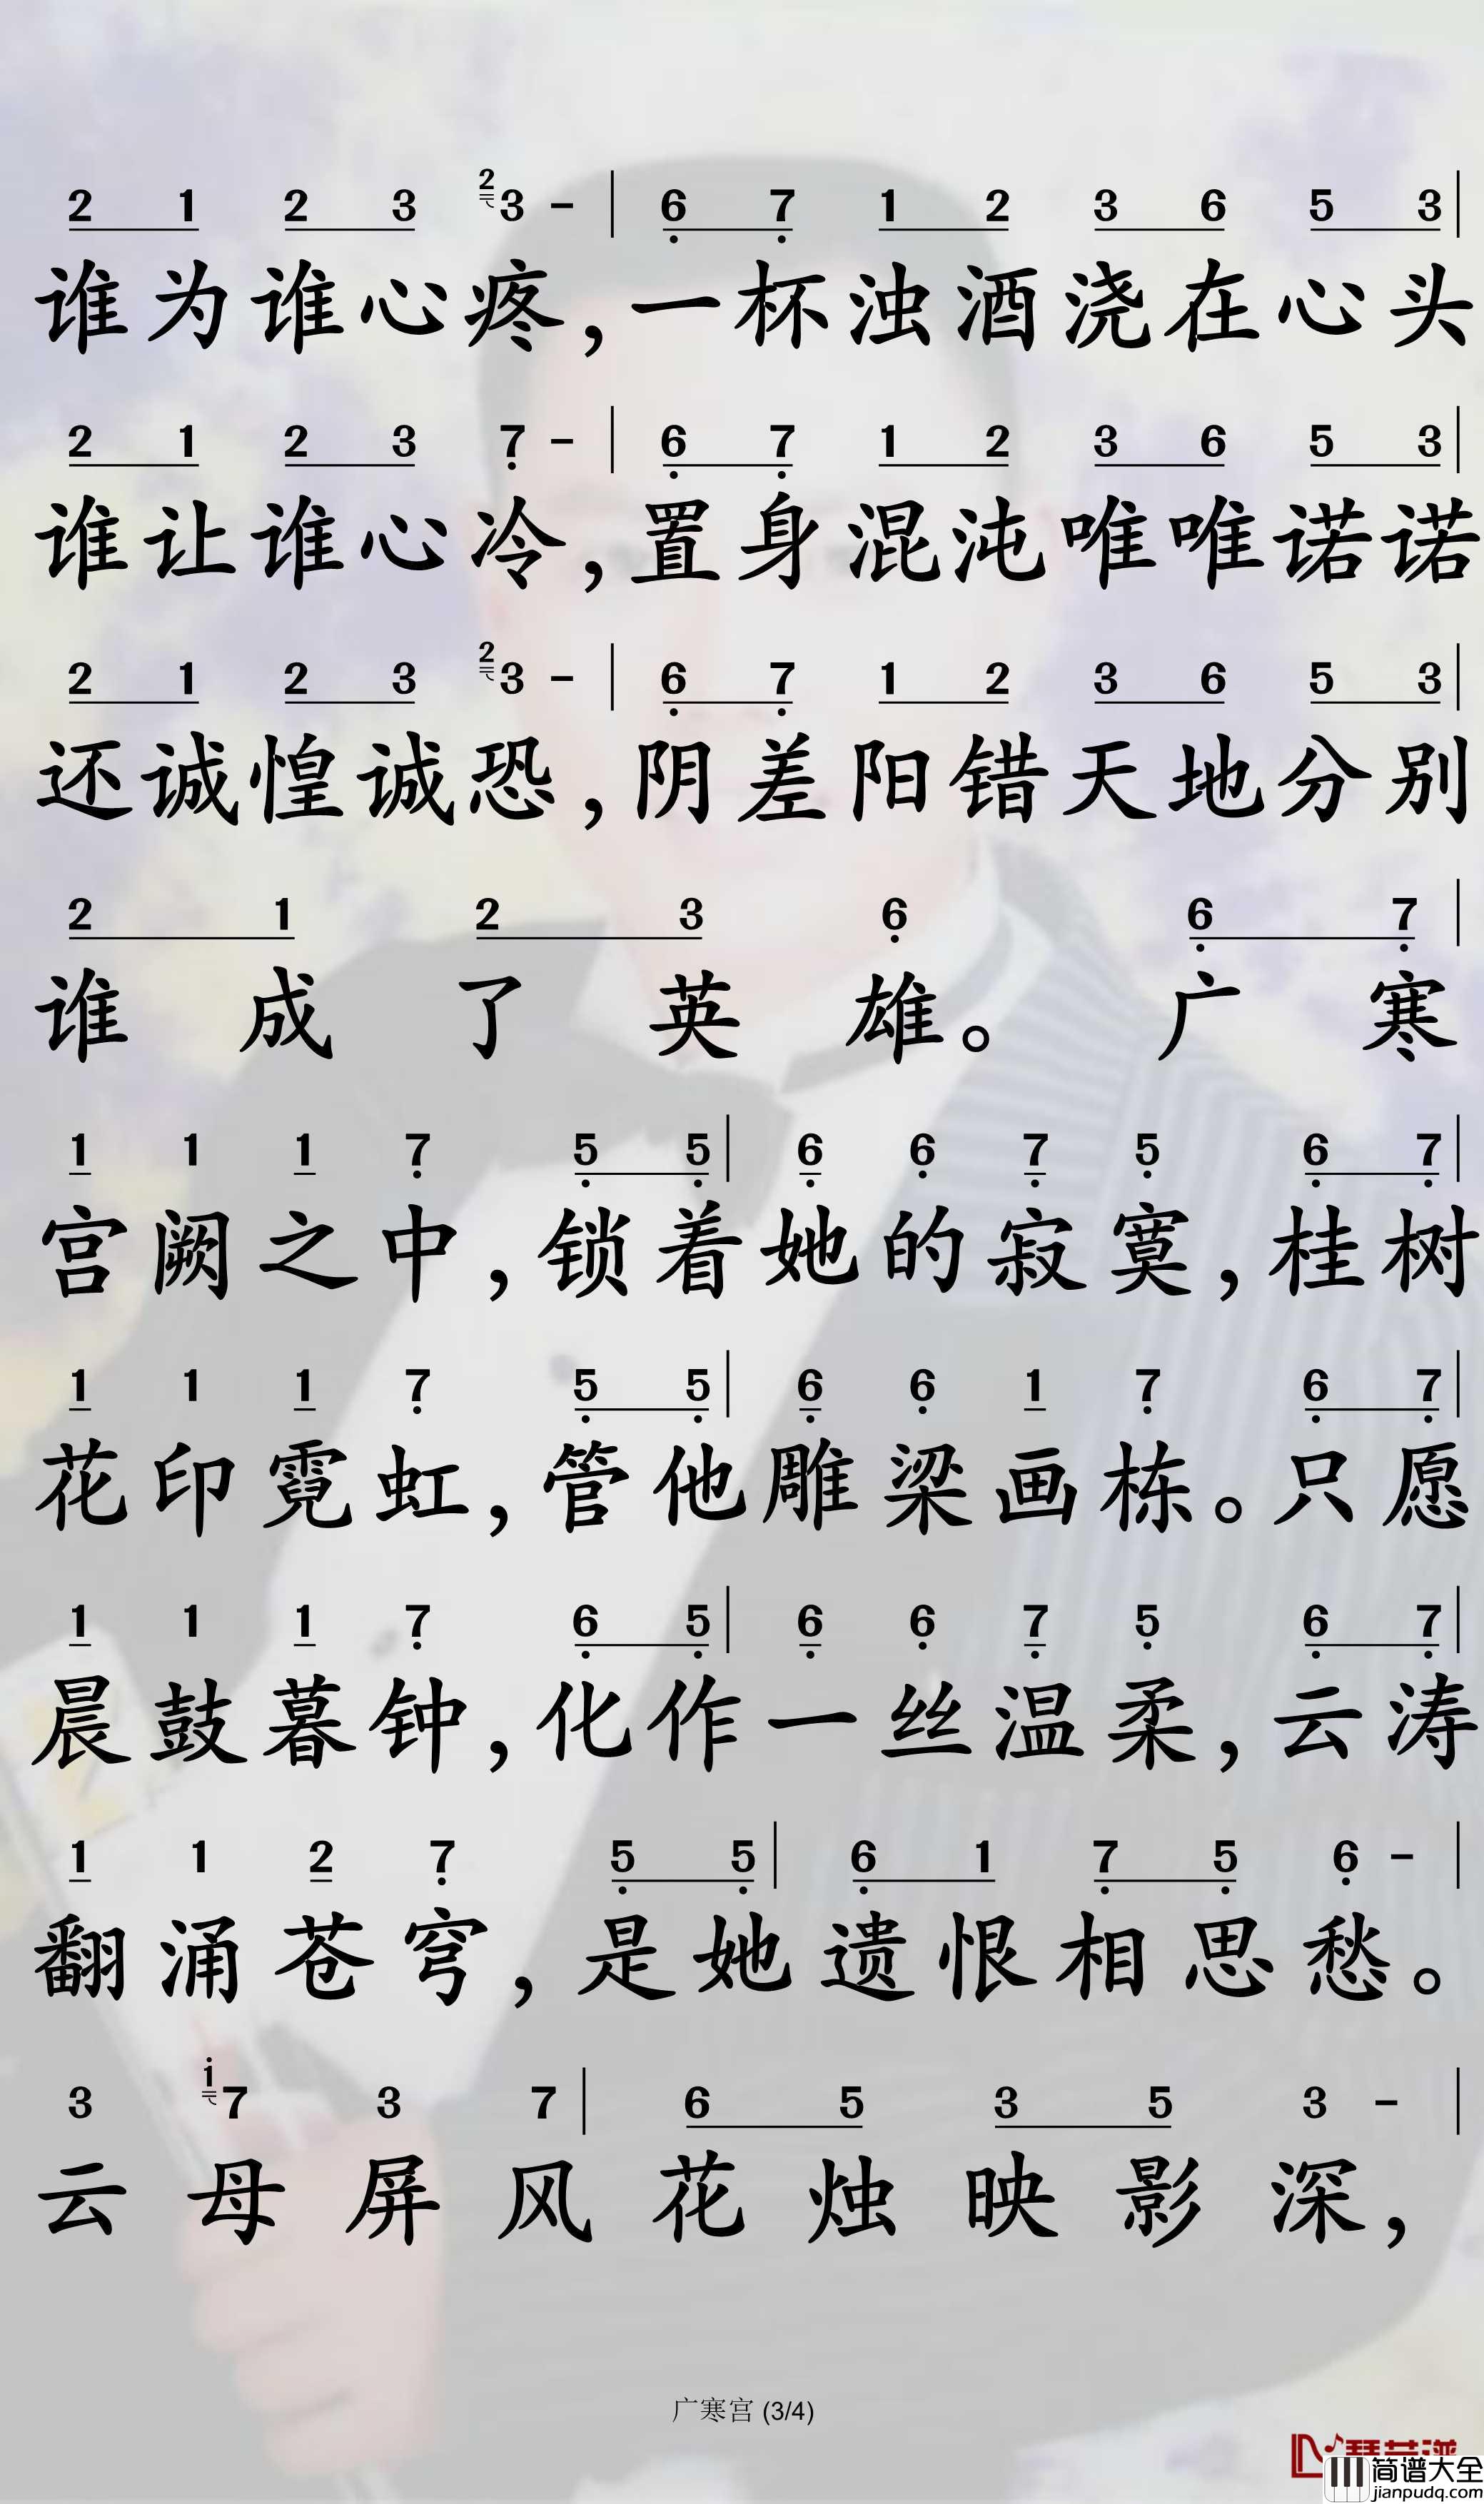 2 1 2 3 2 3 - | 6 7 1 2 3 6 5 3 |
谁为谁心疼，一杯浊酒浇在心头
2 1 2 3 7 - | 6 7 1 2 3 6 5 3 |
谁让谁心冷，置身混沌唯唯诺诺
2 1 2 3 2 3 - | 6 7 1 2 3 6 5 3 |
还诚惶诚恐，阴差阳错天地分别
2 1 2 3 6 6 7 |
谁成了英雄。广寒
1 1 1 7 5 5 | 6 6 7 5 6 7 |
宫阙之中，锁着她的寂寞，桂树
1 1 1 7 5 5 | 6 6 1 7 6 7 |
花印霓虹，管他雕梁画栋。只愿
1 1 1 7 6 5 | 6 6 7 5 6 7 |
晨鼓暮钟，化作一丝温柔，云涛
1 1 2 7 5 5 | 6 1 7 5 6 - |
翻涌苍穹，是她遗恨相思愁。
3 i 7 3 7 | 6 5 3 5 3 - |
云母屏风花烛映影深，
广寒宫 (3/4)
简谱大全
jianpudq.com